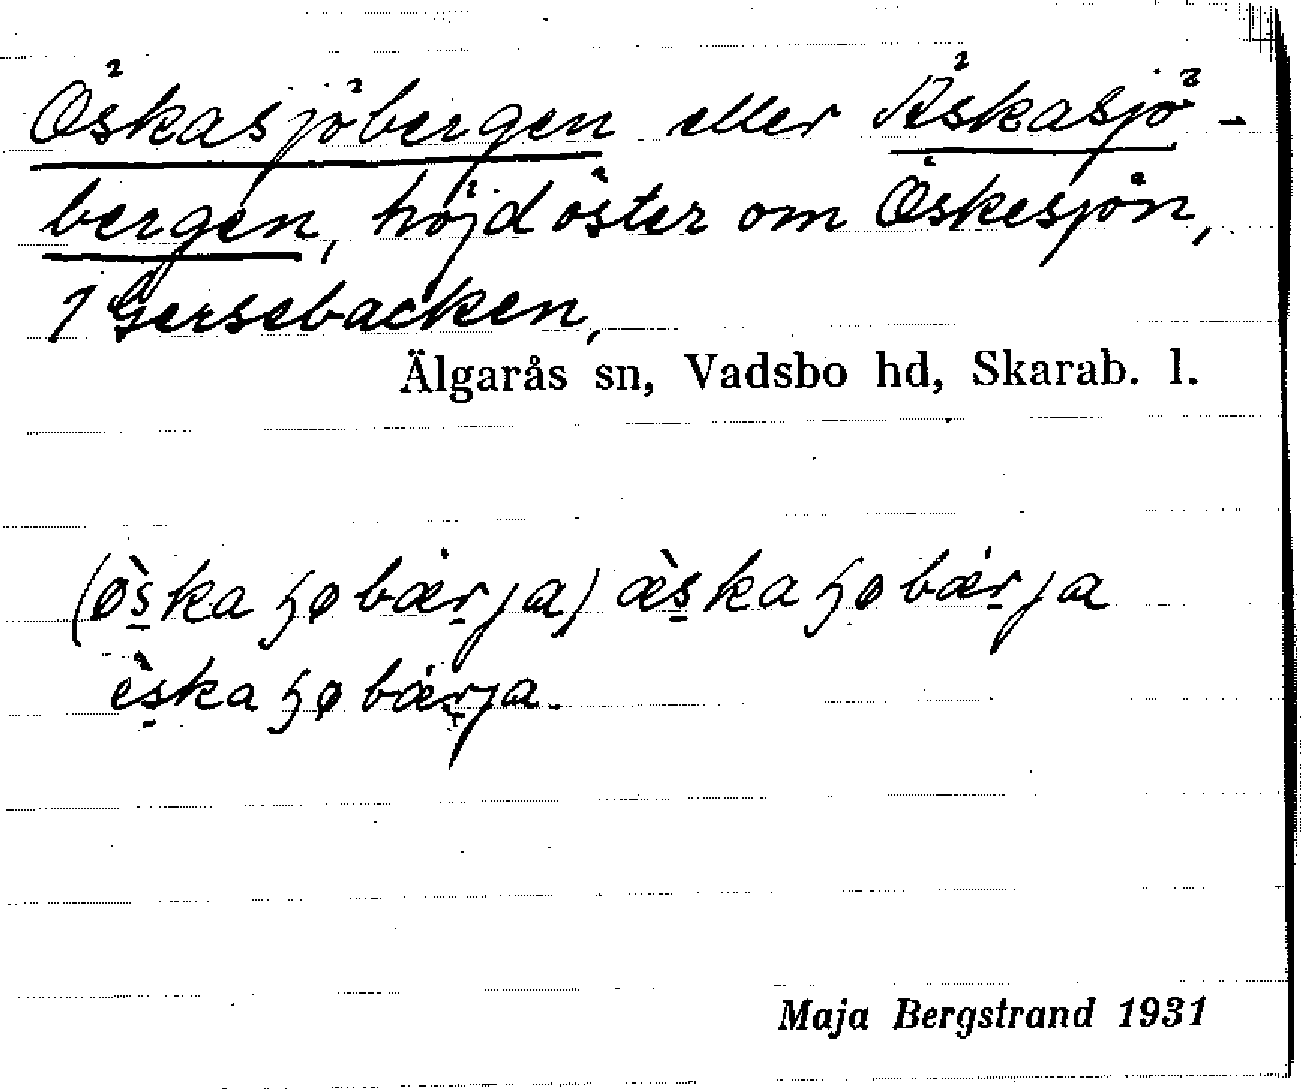 Öskasjöbergen eller Äskasjö-
bergen, höjd öster om Öskesjön,
1 Gersebacken,
Älgarås sn, Vadsbo hd, Skarab. l.
(ø̀s̱ka ɧø bæ̀ṟja) æ̀s̱ka ɧø bæ̀ṟja
ès̱ka ɧø bæ̀ṟja.
Maja Bergstrand 1931